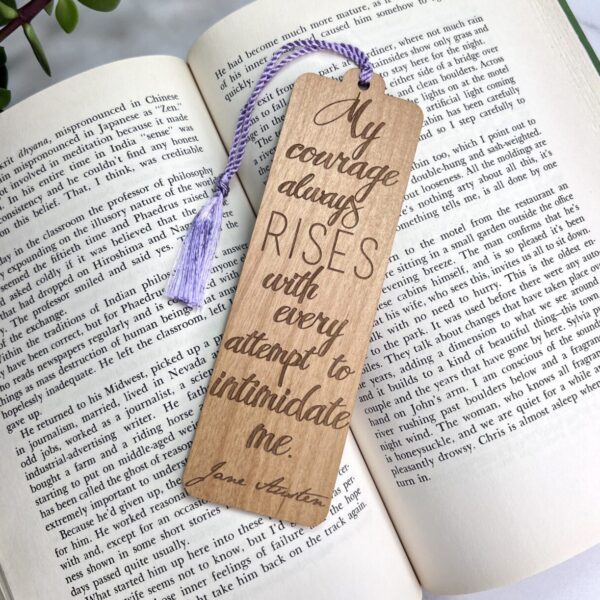 krit dhyana, mispronounced in Chinese
in mispronounced in Japanese as “Zen.”
ot involved in meditation because it made
in his entire time in India “sense” was
onsistency and he couldn't find any honest
on this belief. That, I think, was creditable
ay in the classroom the professor of philosophy
y expounding on the illusory nature of the world
seemed the fiftieth time and Phaedrus raised
asked coldly if it was believed that the
that had dropped on Hiroshima and Nagasaki
The professor smiled and said yes. That
of the exchange.
Within the traditions of Indian philosophy answer
have been correct, but for Phaedrus
o reads newspapers regularly and is
ings as mass destruction of human beings
hopelessly inadequate. He left the classroom
gave up.
He returned to his Midwest, picked up a
in journalism, married, lived in Nevada
odd jobs, worked as a journalist, a
industrial-advertising writer. He
bought a farm and a riding horse
starting to put on middle-aged
has been called the ghost of reason
extremely important to
Because he'd given up,
for him. He worked
with and, except for an
ness shown in some short stories
days passed quite usually.
What started him up here into these
seems not to know, but I'd
those inner feelings of failure
ght take him back on the track again.
My
courage
always
RISES
with
every
attempt to
intimidate
me.
Jane Austen
He had become much more mature, as
of his inner
quickly.
exit from diner, where not much rain
mountainsides show only grass and
stay here for the night.
either side of a bridge over
and clean boulders. Across
lights on at the motel
artificial light coming
bin has been carefully
and so I step carefully to
bin too, which I point out to
double-hung and sash-weighted.
about looseness. All the moldings are
nothing arty about all this, it's
something tells me, is all done by one
to the motel from the restaurant an
sitting in a small garden outside the office
evening breeze. The man confirms that he's
cabins himself, and is so pleased it's been
his wife, who sees this, invites us all to sit down.
with no need to hurry. This is the oldest en-
park. It was used before there were any auto-
They talk about changes that have taken place over
adding a dimension to what we see around
and it builds to a kind of beautiful thing—this town,
couple and the years that have gone by here. Sylvia puts
hand on John's arm. I am conscious of the sound
river rushing past boulders below and a fragrance
night wind. The woman, who knows all fragrances,
is honeysuckle, and we are quiet for a while and
pleasantly drowsy. Chris is almost asleep when
turn in.